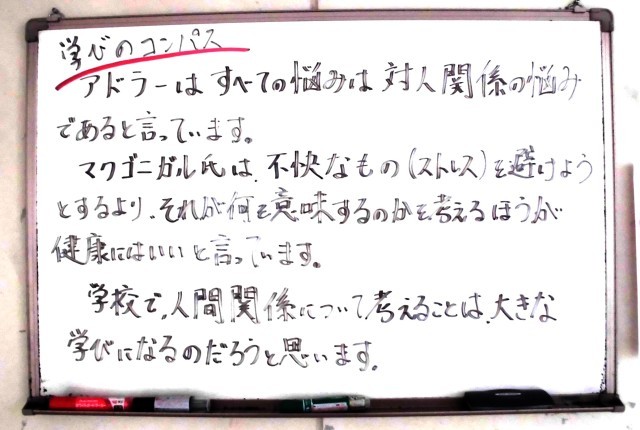 学びのコンパス
アドラーはすべての悩みは対人関係の悩み
であると言っています。
マクゴニガル氏は、不快なもの(ストレス)を避けよう
とするより、それが何を意味するのかを考えるほうが
健康にはいいと言っています。
学校で、人間関係について考えることは、大きな
学びになるのだろうと思います。